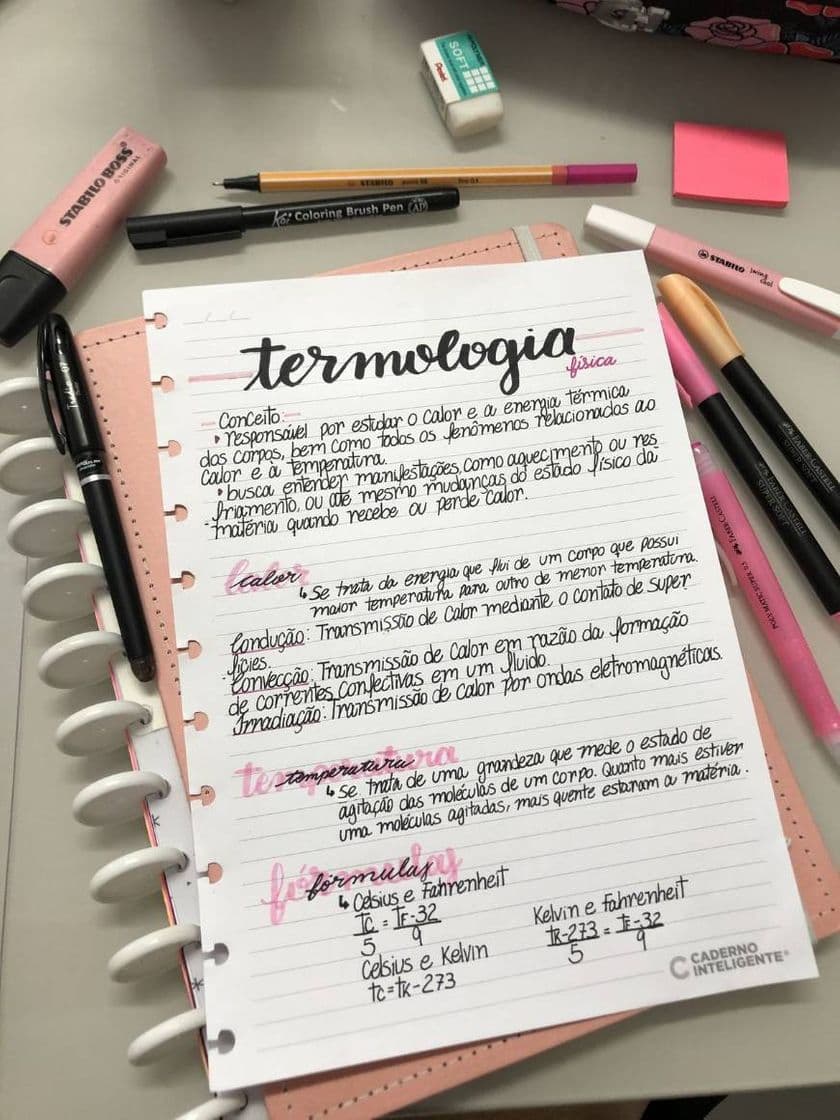 SOFT
Pentel
STABILO BOSS
ORIGINAL
STABILO point 88
Koi Coloring Brush Pen AP
STABILO swing cool
termologia
física
Conceito:
• responsável por estudar o calor e a energia térmica
dos corpos, bem como todos os fenômenos relacionados ao
calor e à temperatura.
• busca entender manifestações, como aquecimento ou res
-friamento, ou até mesmo mudanças do estado físico da
matéria quando recebe ou perde calor.
calor
↳ Se trata da energia que flui de um corpo que possui
maior temperatura para outro de menor temperatura.
Condução: Transmissão de Calor mediante o contato de super
-fícies.
Convecção: Transmissão de Calor em razão da formação
de correntes convectivas em um fluido.
Irradiação: Transmissão de calor por ondas eletromagnéticas.
temperatura
↳ Se trata de uma grandeza que mede o estado de
agitação das moléculas de um corpo. Quanto mais estiver
uma moléculas agitadas, mais quente estaram a matéria.
fórmulas
↳ Celsius e Fahrenheit
Tc = TF-32
5 9
Celsius e Kelvin
tc=tK-273
Kelvin e Fahrenheit
tK-273 = tF-32
5 9
CADERNO
INTELIGENTE®
FABER-CASTELL